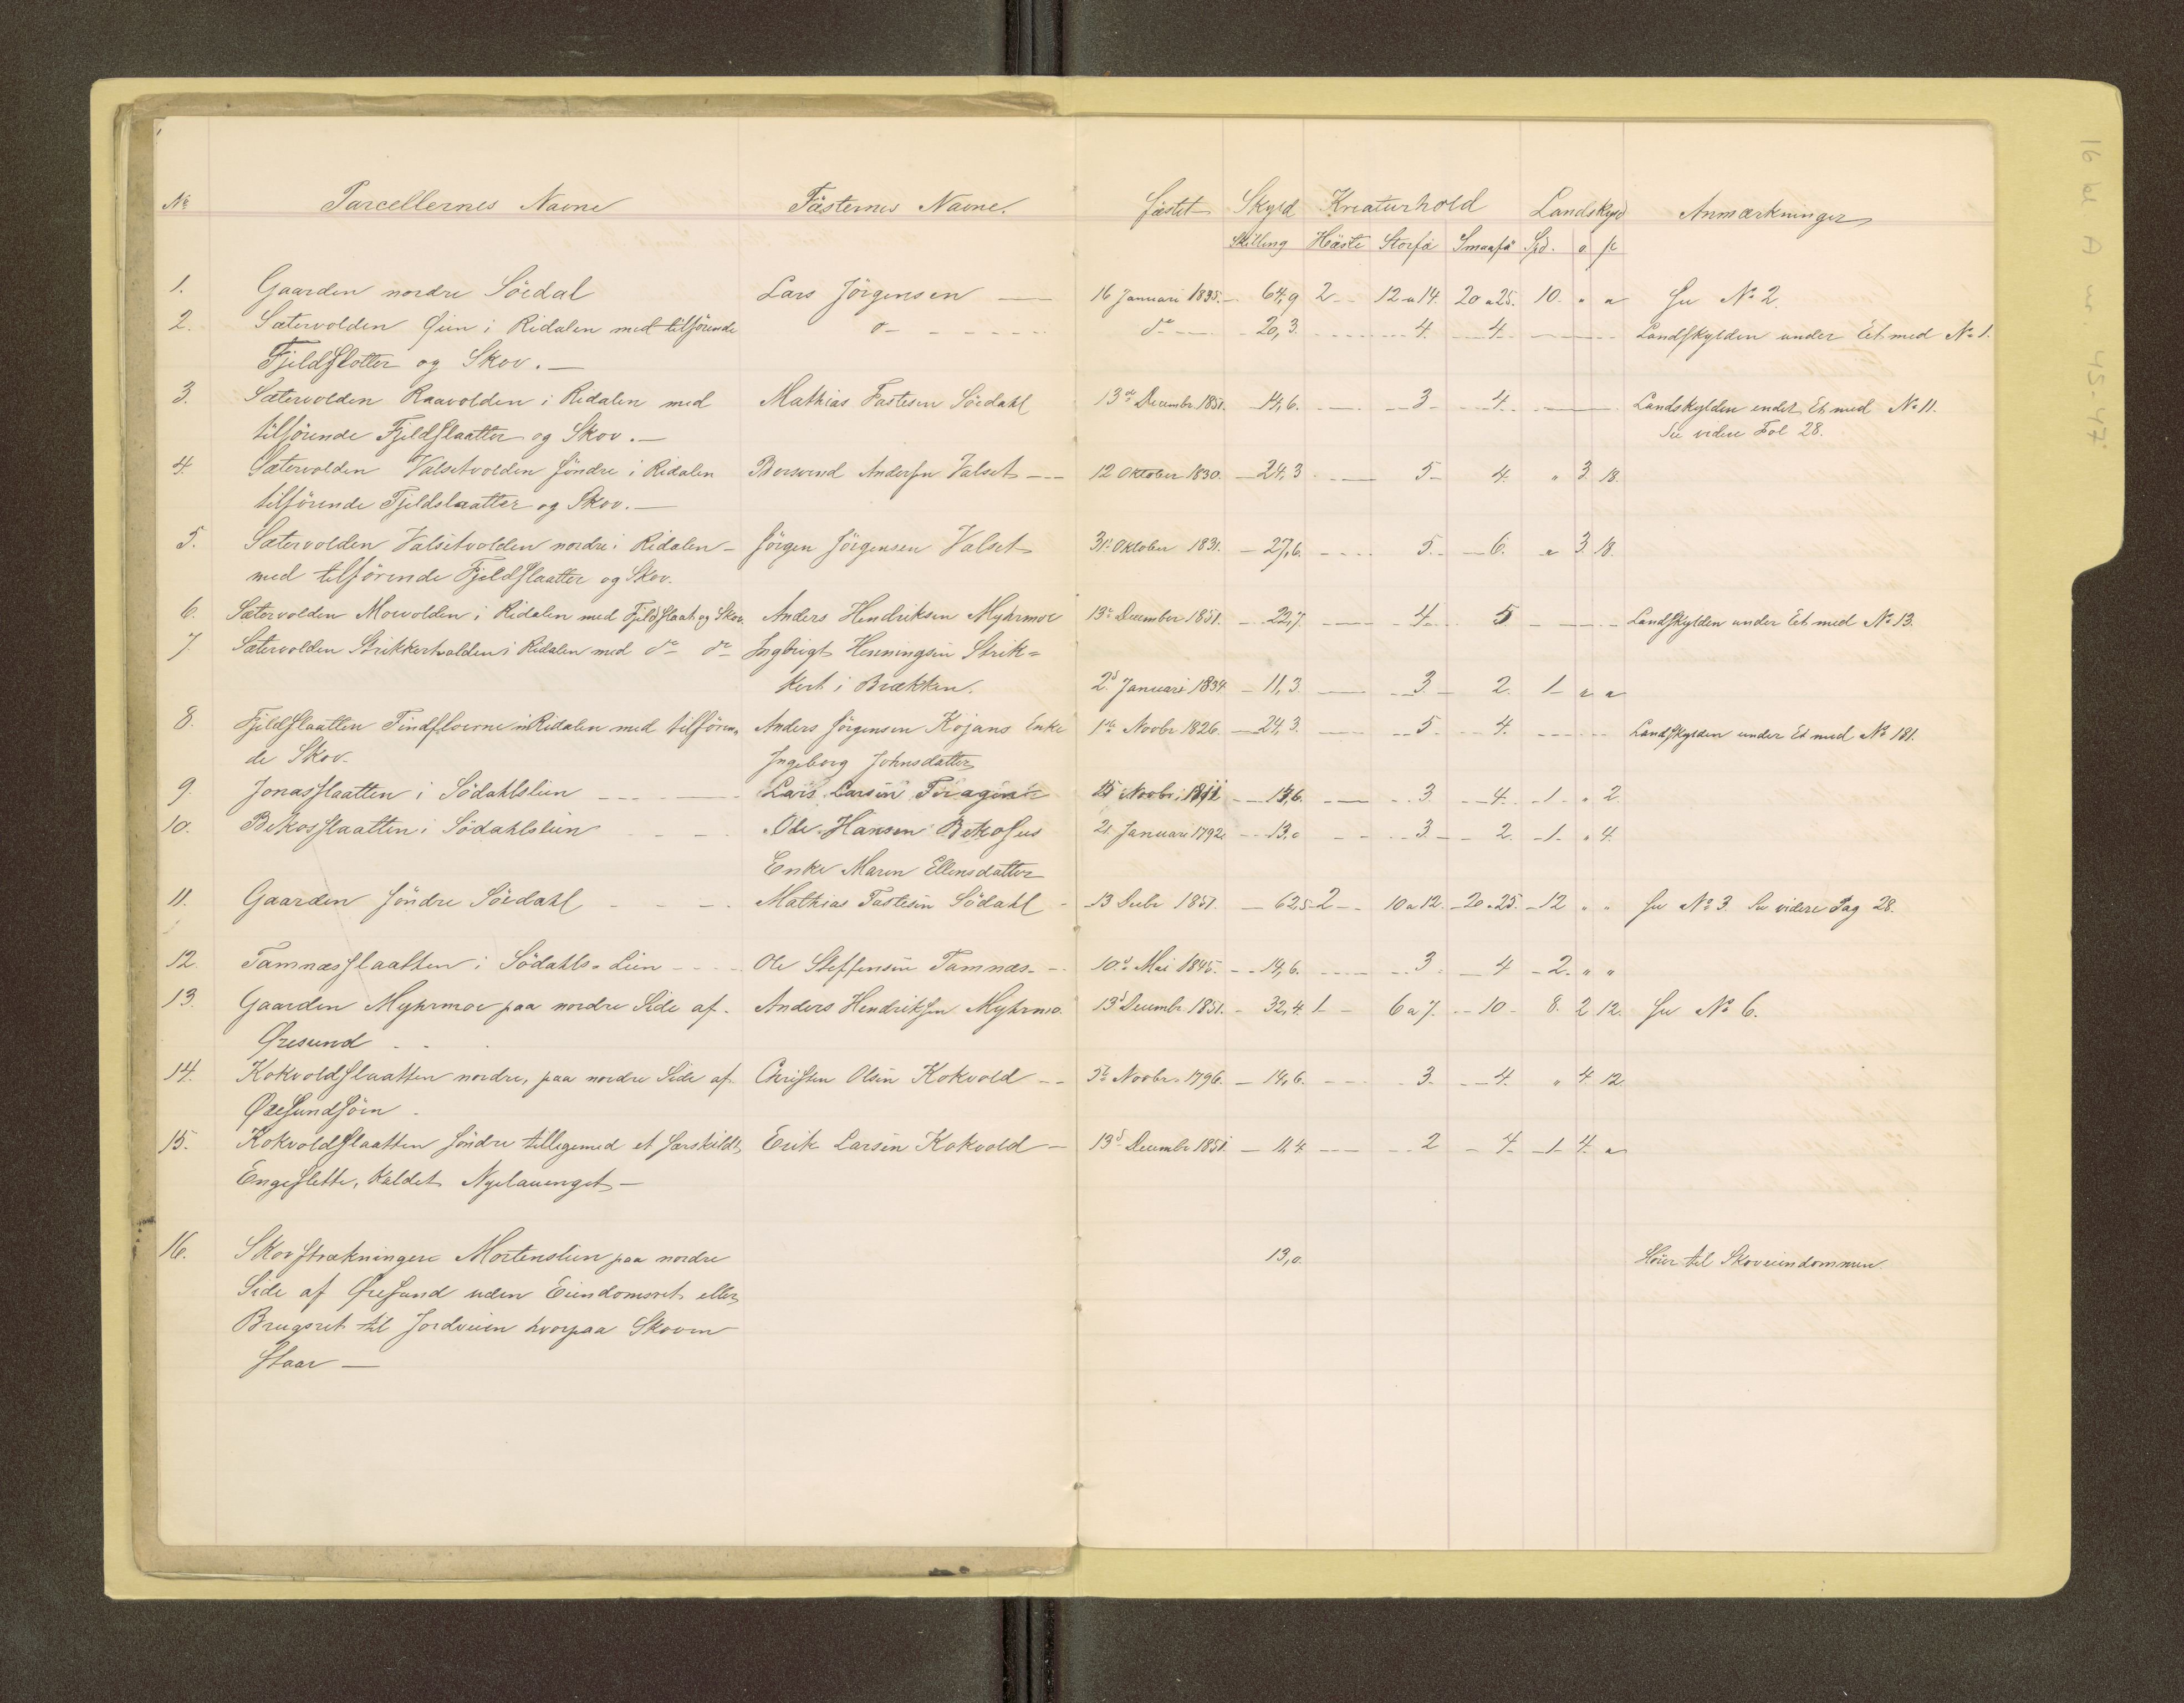 No Parcellernes Navne Fästernes Navne. fæstet Skyld Kreaturhold Landskyld Anmærkninger
Skilling Häste Storfä Smaafä Spd. o ß
1. Gaarden nordre Söedal Lars Jörgensen — 16 Januari 1835. 64,9 2 12 a 14. 20 a 25. 10. " " Se No 2.
2. Sætervolden Øien i Ridalen med tilförende do do 20,3 4. 4. Landskylden under Et med No 1.
Fjeldslotter og Skov. —
3. Sætervolden Raavolden i Ridalen med Mathias Fastesen Söedahl 13de Decembr 1851. 14,6. 3 4. Landskylden under Et med No 11.
tilförende Fjeldslaatter og Skov. — Se videre Fol 28.
4. Sætervolden Valsetvolden söndre i Ridalen Borsvend Andersen Valset 12 Oktober 1830. 24,3 5 4. " 3 18.
tilförende Fjeldslaatter og Skov. —
5. Sætervolden Valsetvolden nordre i Ridalen Jörgen Jörgensen Valset 31. Oktober 1831. 27,6. 5. 6. " 3. 18.
med tilförende Fjeldslaatter og Skov.
6. Sætervolden Moevolden i Ridalen med Fjeldslaat og Skov. Anders Hendriksen Myhrmoe 13de December 1851. 22,7. 4. 5 Landskylden under Et med No 13.
7. Sætervolden Strikkertvolden i Ridalen med do do Ingbrigt Henningsen Strik=
kert i Brækken. 2d Januari 1834 11,3. 3. 2. 1 " "
8. Fjeldslaatten Tindfloerne i Ridalen med tilfören= Anders Jörgensen Kojans Enke 1de Novbr 1826. 24,3. 5. 4. Landskylden under Et med No 181.
de Skov. Ingeborg Johnsdatter
9. Jonasslaatten i Södahlslien Lars Larsen 15 Novbr 1811 14,6. 3. 4. 1. " 2.
10. Bekosslaatten i Södahlslien Ole Hansen Bekosus 21 Januari 1792. 13.0 3. 2. 1. " 4.
Enke Maren Ellensdatter
11. Gaarden söndre Söedahl Mathias Fastesen Södahl 13 Decbr 1851. 62,5 2 10 a 12. 20 a 25. 12 " " Se No 3. Se videre Pag 28.
12. Tamnæsslaatten i Södahls= Lien Ole Steffensen Tamnæs. 10de Mai 1845. 14,6. 3 4 2. " "
13. Gaarden Myhrmoe paa nordre Side af Anders Hendriksen Myhrmo. 13d Decembr 1851. 32,4. 1 6 a 7. 10 8. 2 12. Se No 6.
Øresund
14. Kokvoldslaatten nordre, paa nordre Side af Christen Olsen Kokvold 5te Novbr 1796. 14,6. 3. 4. " 4. 12.
Øresundsöen
15. Kokvoldslaatten söndre tilligemed et særskildt Erik Larsen Kokvold 13d Decembr 1851. 11,4. 2 4. 1 4. "
Engeslette, kaldet Nyelauenget —
16. Skovstrækningere Mortenslien paa nordre 13,0. Hörer til Skoveiendommen.
Side af Øresund uden Eiendomsret eller
Brugsret til Jordveien hvorpaa Skoven
staar —
16 d A m. 45-47